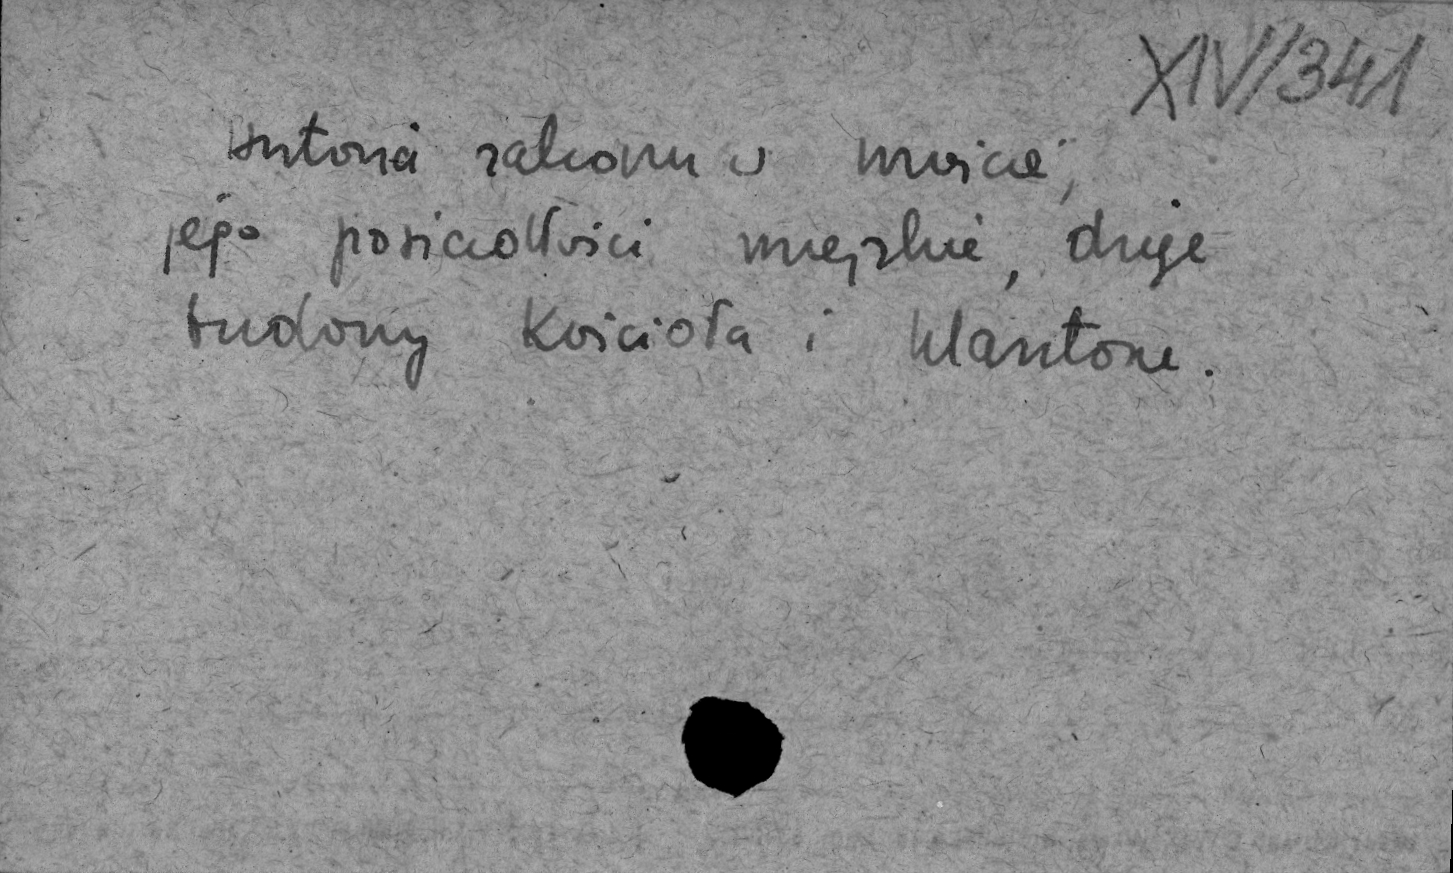 XIV/341
historia zakonu w mieście,
jego posiadłości miejskie, dzieje
budowy kościoła i klasztoru.